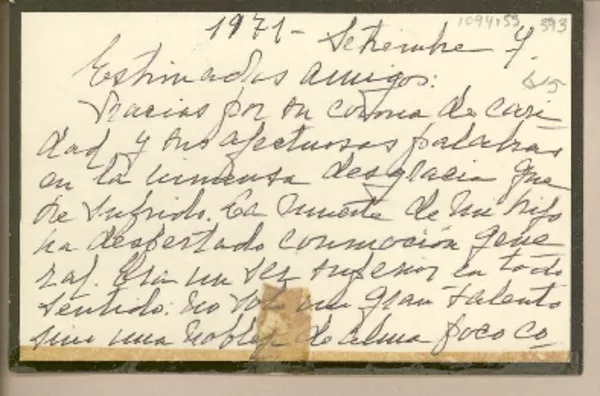 1094153 393
1971 - Setiembre 7.
615
Estimados amigos:
Gracias por su corona de cari
dad y sus afectuosas palabras
en la inmensa desgracia que
he sufrido. La muerte de mi hijo
ha despertado conmoción gene
ral. Era un ser superior en todo
sentido: no sólo un gran talento
sino una nobleza de alma poco co